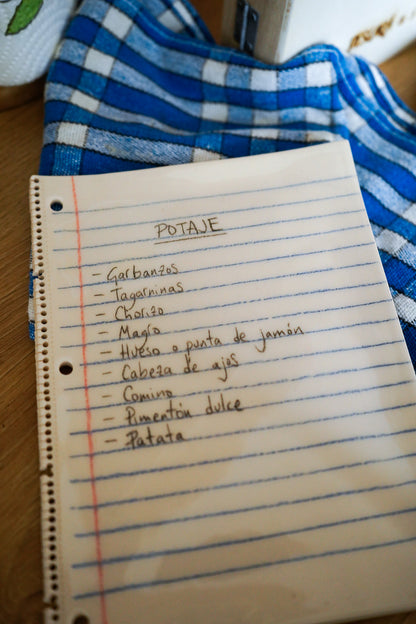 POTAJE
- Garbanzos
- Tagarninas
- Chorizo
- Magro
- Hueso o punta de jamón
- Cabeza de ajos
- Comino
- Pimentón dulce
- Patata